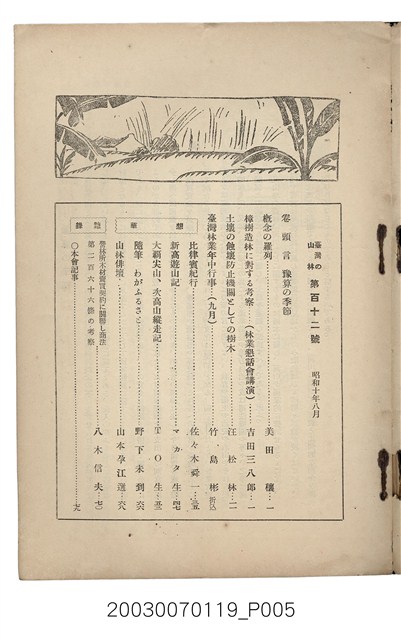 臺灣の山林 第百十二號 昭和十年八月
卷頭言 豫算の季節
概念の羅列……美田穰…一
樟樹造林に對する考察 (林業懇話會講演)…吉田三八郎…一
土壤の蝕壞防止機關としての樹木……汪松林…二
臺灣林業年中行事…(九月)……竹島彬 折込
想華
比律賓紀行……佐々木舜一
新高遊山記……マカタ生
大霸尖山、次高山縱走記……T O 生
隨筆 わがふるさと……野下未到
山林俳壇……山本孕江選
雜錄
營林所木材賣買契約に關聯し商法
第二百六十六條の考察……八木信夫
〇本會記事
20030070119_P005